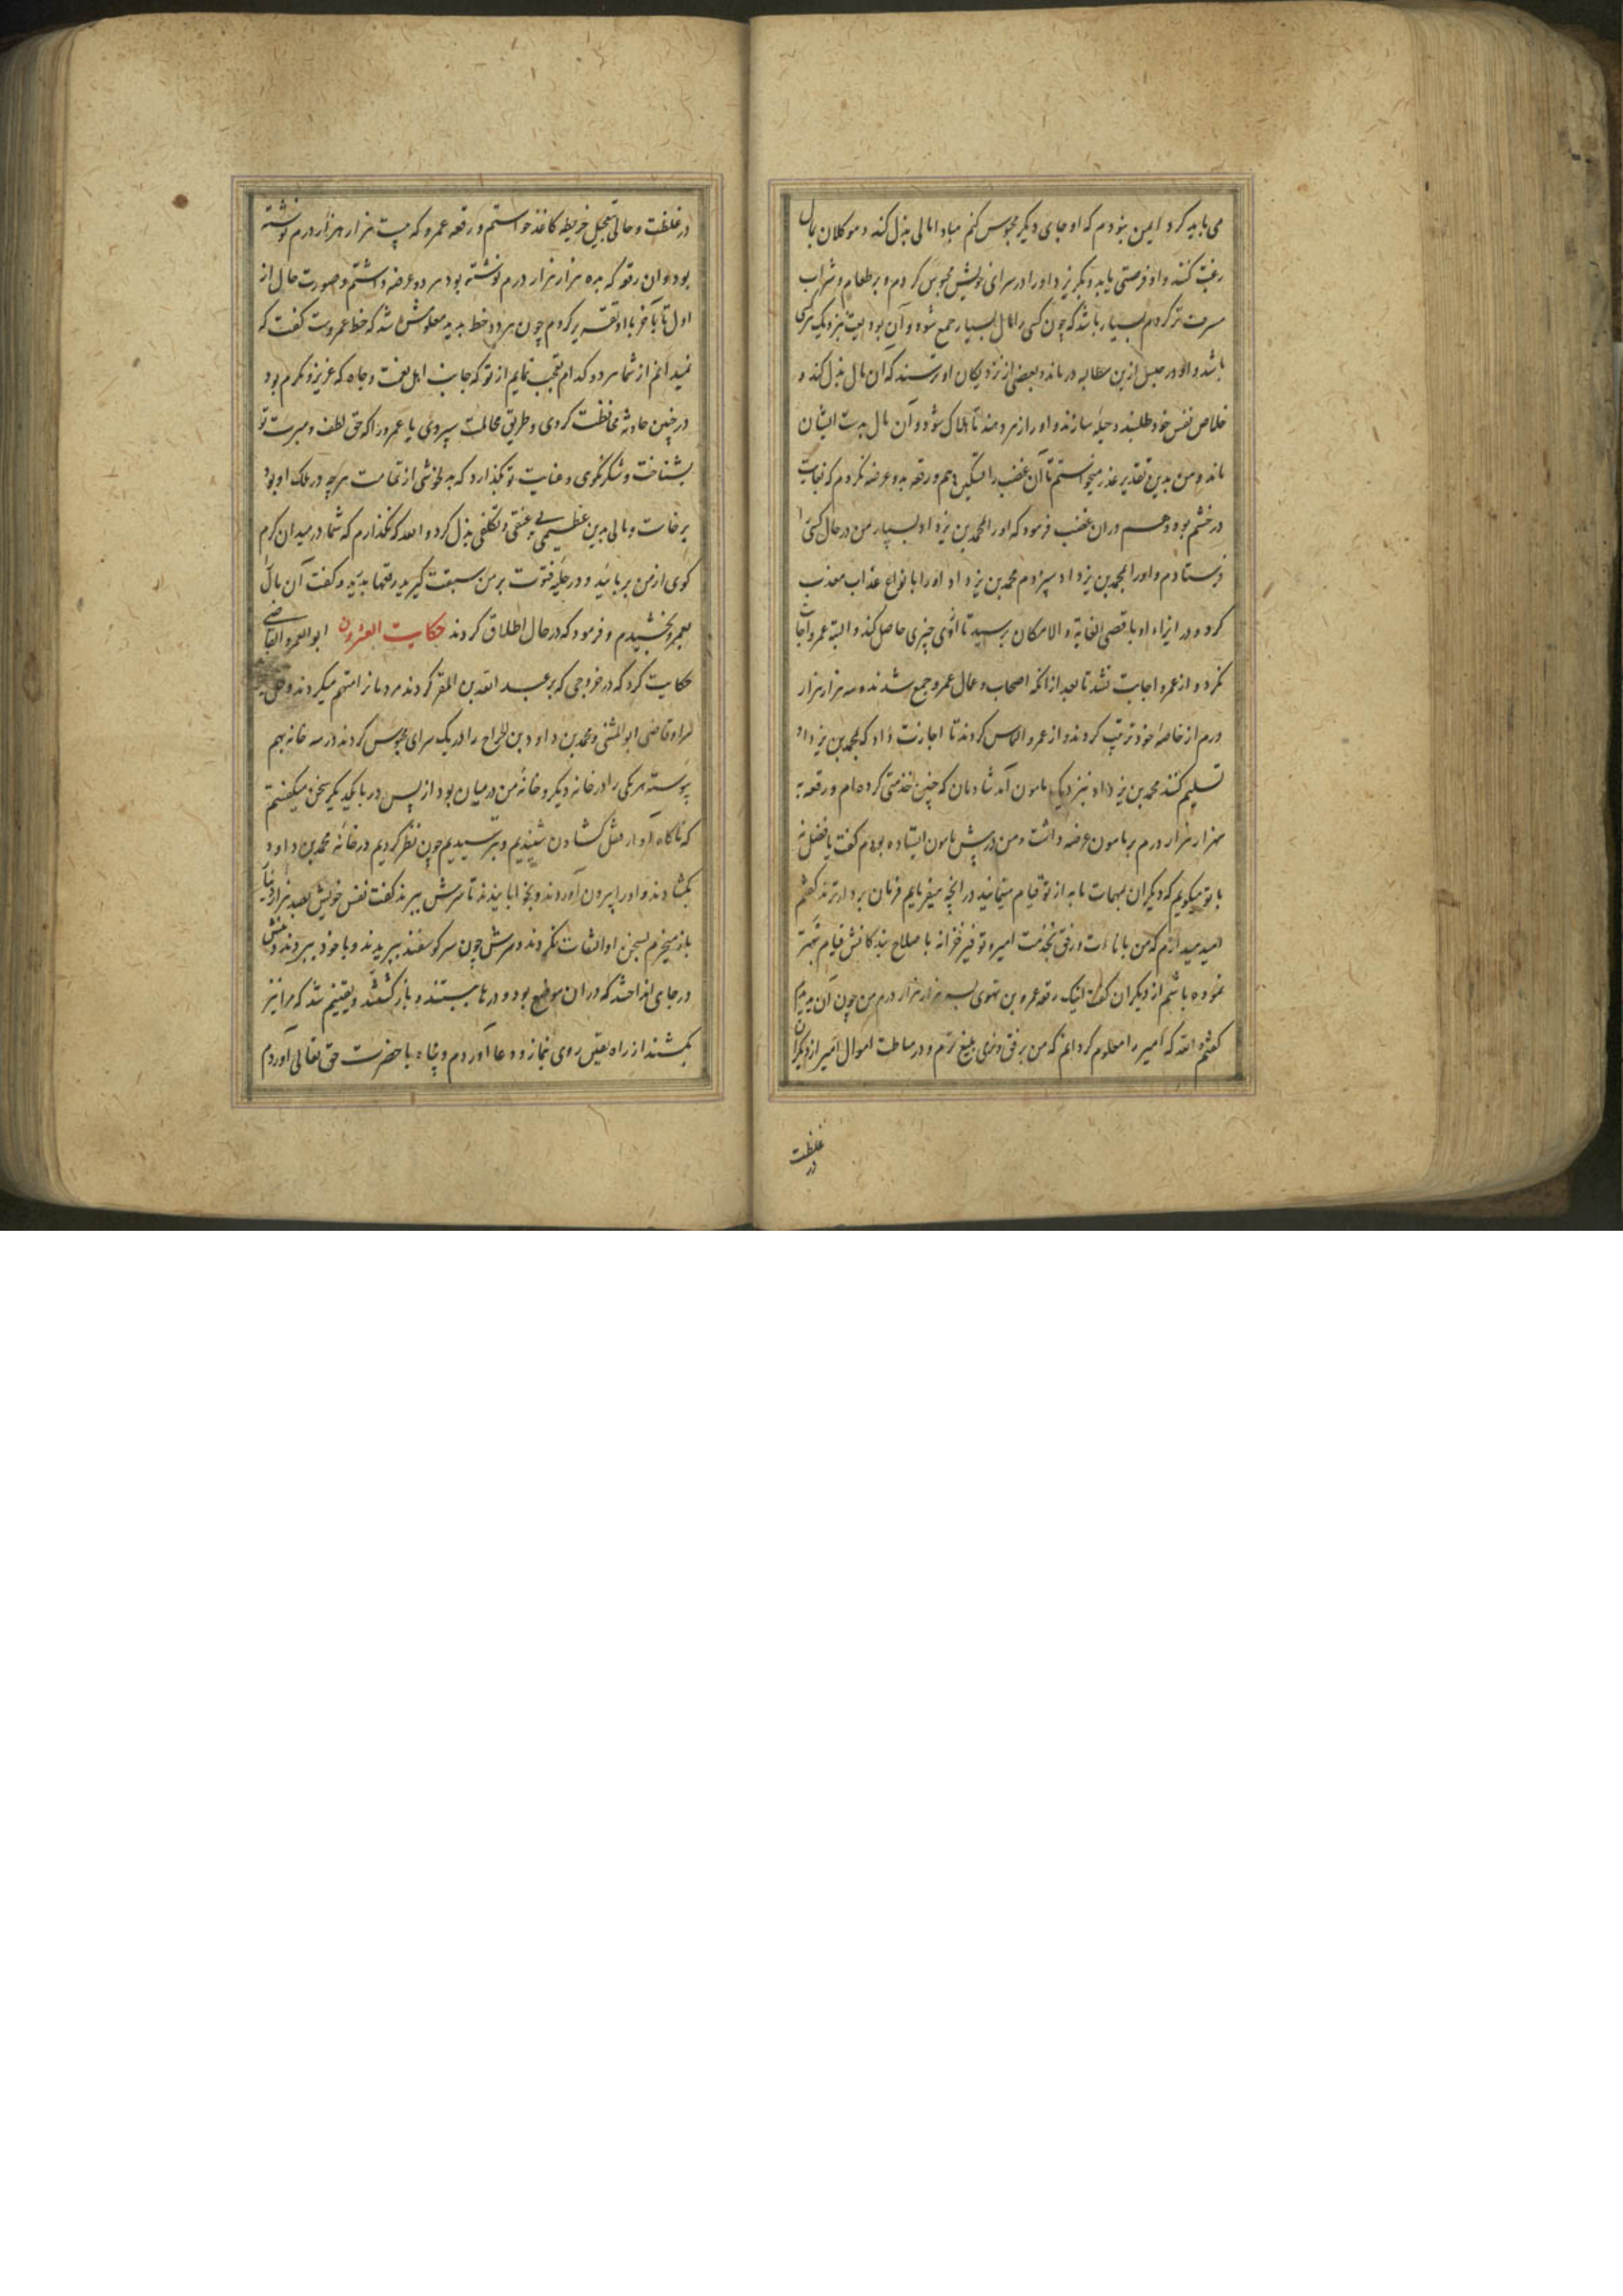 می باید کرد ایمن نبودم که او جای دیگر محبوس کنم مبادا مالی بذل کند و موکلان بمال
رغبت کنند و او فرصتی یابد و بگریزد او را در سرای خویش محبوس کردم و بر طعام و شراب
بسیار باشد که چون کسی را مال بسیار جمع شود و آن بود بیت نزدیک
باشد و او در حبس ازین مطالبه درماند و بعضی از نزدیکان او ترسند که آن مال بذل کند و
خلاص نفس خود طلبند و حیله سازند و او را زهر دهند تا هلاک شود و آن مال بدست ایشان
ماند و من بدین تقدیر عذر میخواستم تا آن غضب را تسکین دهم و رقعه بدو عرضه نکردم که بغایت
در خشم بود و هم در ان غضب فرمود که او را بمحمد بن یزداد بسپار من در حال کس
فرستادم و او را بمحمد بن یزداد سپردم محمد بن یزداد او را بانواع عذاب معذب
کرد و در ایذاء او باقصی الغایة و الامکان برسید تا ازوی چیزی حاصل کند و البته عمرو اجابت
نکرد و از عمرو اجابت نشد تا بعد از انکه اصحاب و عمال عمرو جمع شدند و سه هزار هزار
درم از خاصهٔ خود ترتیب کردند و از عمرو التماس کردند تا اجازت داد که بمحمد بن یزداد
تسلیم کنند محمد بن یزداد نزدیک مامون آمد شادمان که چنین خدمتی کرده ام و رقعه
سه هزار هزار درم بر مامون عرضه داشت و من در پیش مامون ایستاده بودم گفت یا فضل نه
با تو میگویم که دیگران بمهمات ما به از تو قیام مینمایند و در انچه میفرمایم فرمان بردارترند گفتم
امید میدارم که من باناءت و رفق بخدمت امیر و توفیر خزانه با صلاح بندگانش قیام بهتر
نموده باشم از دیگران گفت اینک رقعه عمرو بن نهوی بسه هزار هزار درم من چون آن بدیدم
گفتم الله که امیر را معلوم کردانم که من برفق و نرمی بلیغ ترم و در اموال امیر از دیگران
غلظت
در
در غلظت و حالی بتعجیل خریطه کاغذ خواستم و رقعه عمرو که بیست هزار هزار درم نوشته
بود و ان رقعه که بده هزار هزار درم نوشته بود هر دو عرضه داشتم و صورت حال از
اول تا بآخر با او تقریر کردم چون هر دو خط بدید معلومش شد که خط عمروست گفت که
نمیدانم از شما هر دو کدام تعجب نمایم از تو که جانب اهل نعمت و جاه که عزیز و مکرم بود
در چنین حادثه محافظت کردی و طریق مجاملت سپردی یا عمرو را که حق لطف و مبرت تو
بشناخت و شکر نکوی و عنایت تو بگذارد که بدلخوشی از تمامت هرچه در ملک او بود
برخاست و مالی بدین عظیمی بی عنفی و تکلفی بذل کرد و الله که نگذارم که شما در میدان کرم
کوی از من بربائید و در حلبه فتوت بر من سبقت گیرید رقعها بدرید و گفت آن مال
بعمرو بخشیدم و فرمود که در حال اطلاق کردند حکایت العشرون ابو العمرو القاضی
حکایت کرد که در خروجی که بر عبد الله بن المعتز کردند مردمانرا متهم میکردند و
مرا و قاضی ابو المثنی و محمد بن داود بن الجراح را در یک سرای محبوس کردند در سه خانه بهم
پیوسته هر یکی را در خانه دیگر و خانهٔ من در میان بود از پس در با یکدیگر سخن میگفتیم
که ناگاه آواز قفل گشادن شنیدیم و بترسیدیم چون نظر کردیم در خانهٔ محمد بن داود
بگشادند و او را بیرون آوردند و بخوابانیدند تا سرش ببرند گفت نفس خویش بصد هزار دینار
باز میخرم بسخن او التفات نکردند و سرش چون سر گوسفند ببریدند و با خود ببردند و تنش
در چاهی انداختند که در ان موضع بود و درها ببستند و باز گشتند و یقینم شد که مرا نیز
بکشند از راه یقین روی بنماز و دعا آوردم و پناه با حضرت حق تعالی آوردم